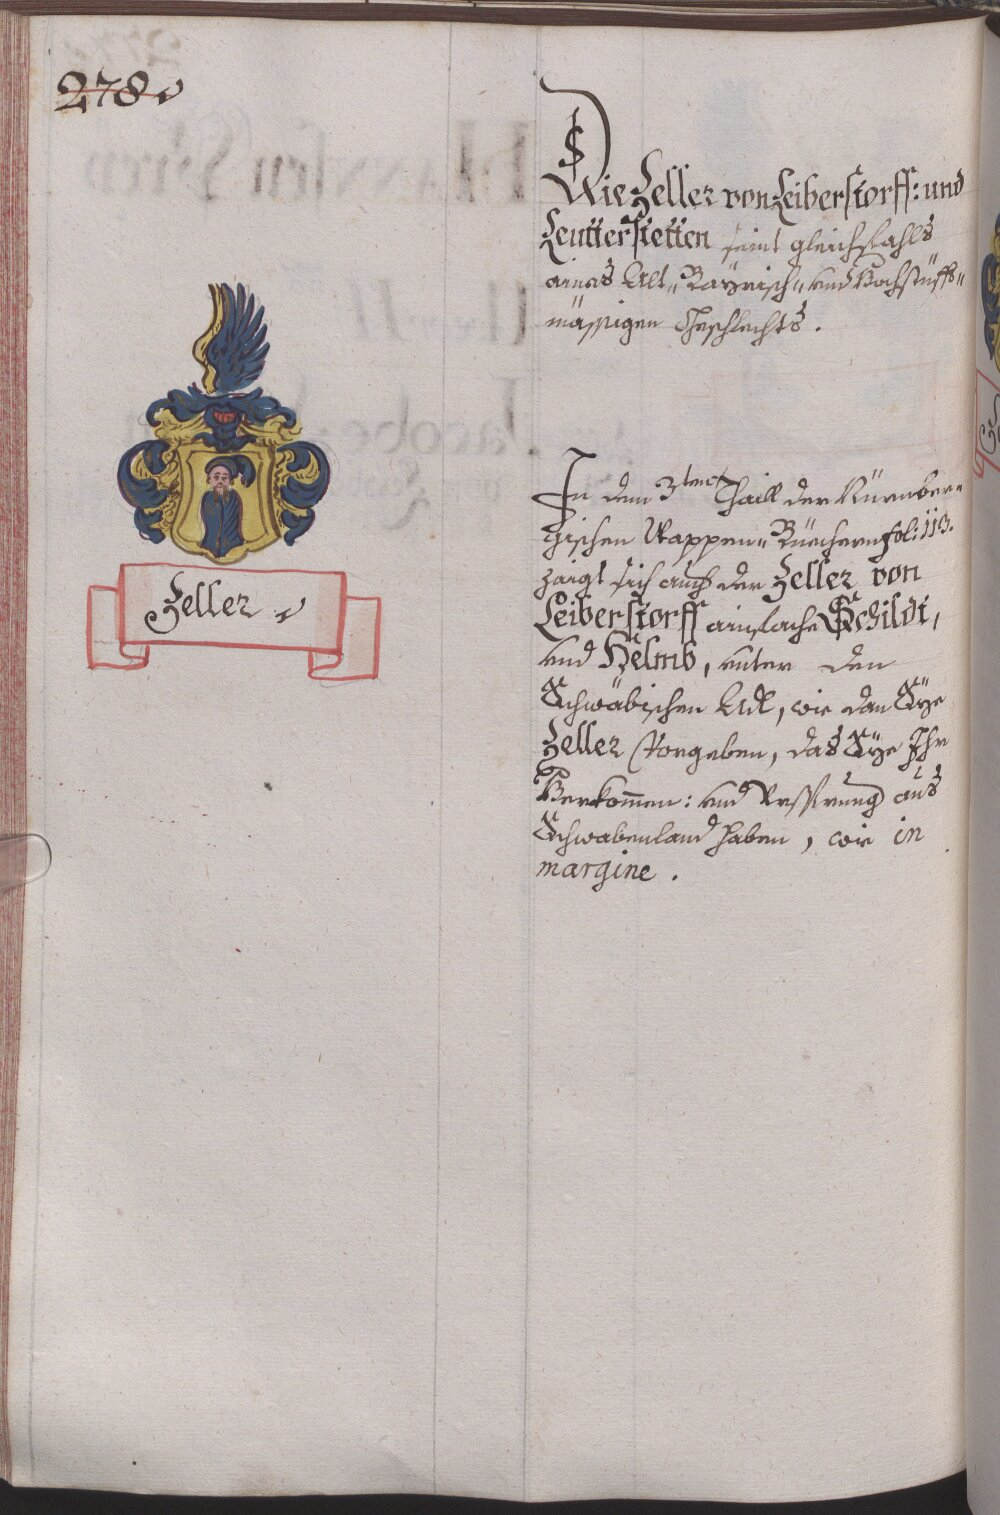 278.
Die Zeller von Leiberstorff: und
Leutterstetten seint gleichfahls
aines Alt„ Bayrisch„ und Hochstüfft„
mässigen Geschlechts.
Zeller
In dem 3ten Thaill der Nürnber„
gischen Wappen„ Büechern fol: 113.
zaigt sich auch der Zeller von
Leiberstorff ainfache Schildt,
und Helmb, unter den
Schwäbischen Adl, wie dan Sye
Zeller Vorgeben, das Sye Ihr
Herkom̄en: und Ursprung aus
Schwabenland haben, wie in
margine.